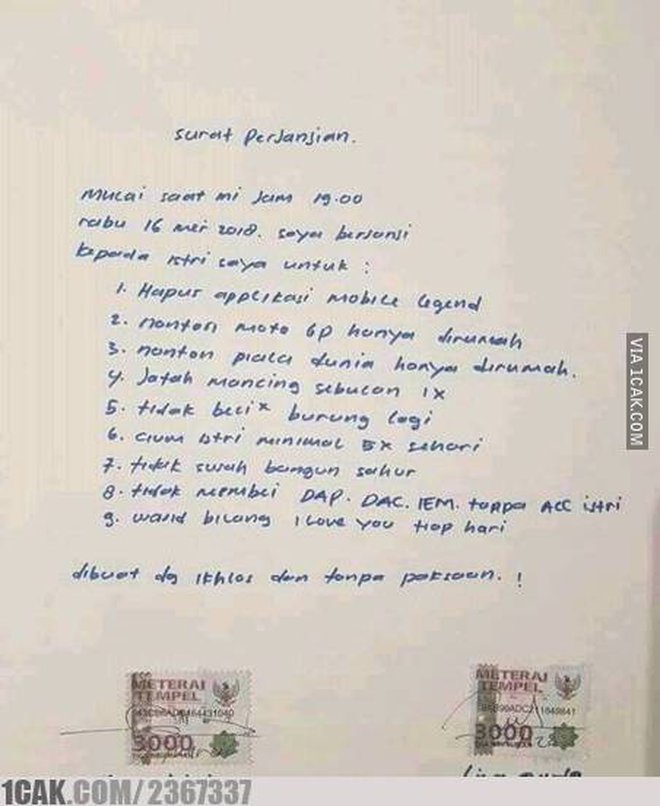 surat perjanjian.
Mulai saat ini jam 19.00
rabu 16 mei 2018. saya berjanji
kepada istri saya untuk :
1. Hapus applikasi mobile legend
2. nonton moto GP hanya dirumah
3. nonton piala dunia hanya dirumah.
4. Jatah mancing sebulan 1x
5. tidak beli x burung lagi
6. cium istri minimal 5x sehari
7. tidak susah bangun sahur
8. tidak membeli DAP. DAC. IEM. tanpa ACC istri
9. wajib bilang I Love You tiap hari
dibuat dg ikhlas dan tanpa paksaan. !
METERAI TEMPEL
3000
METERAI TEMPEL
3000
VIA 1CAK.COM
1CAK.COM/2367337